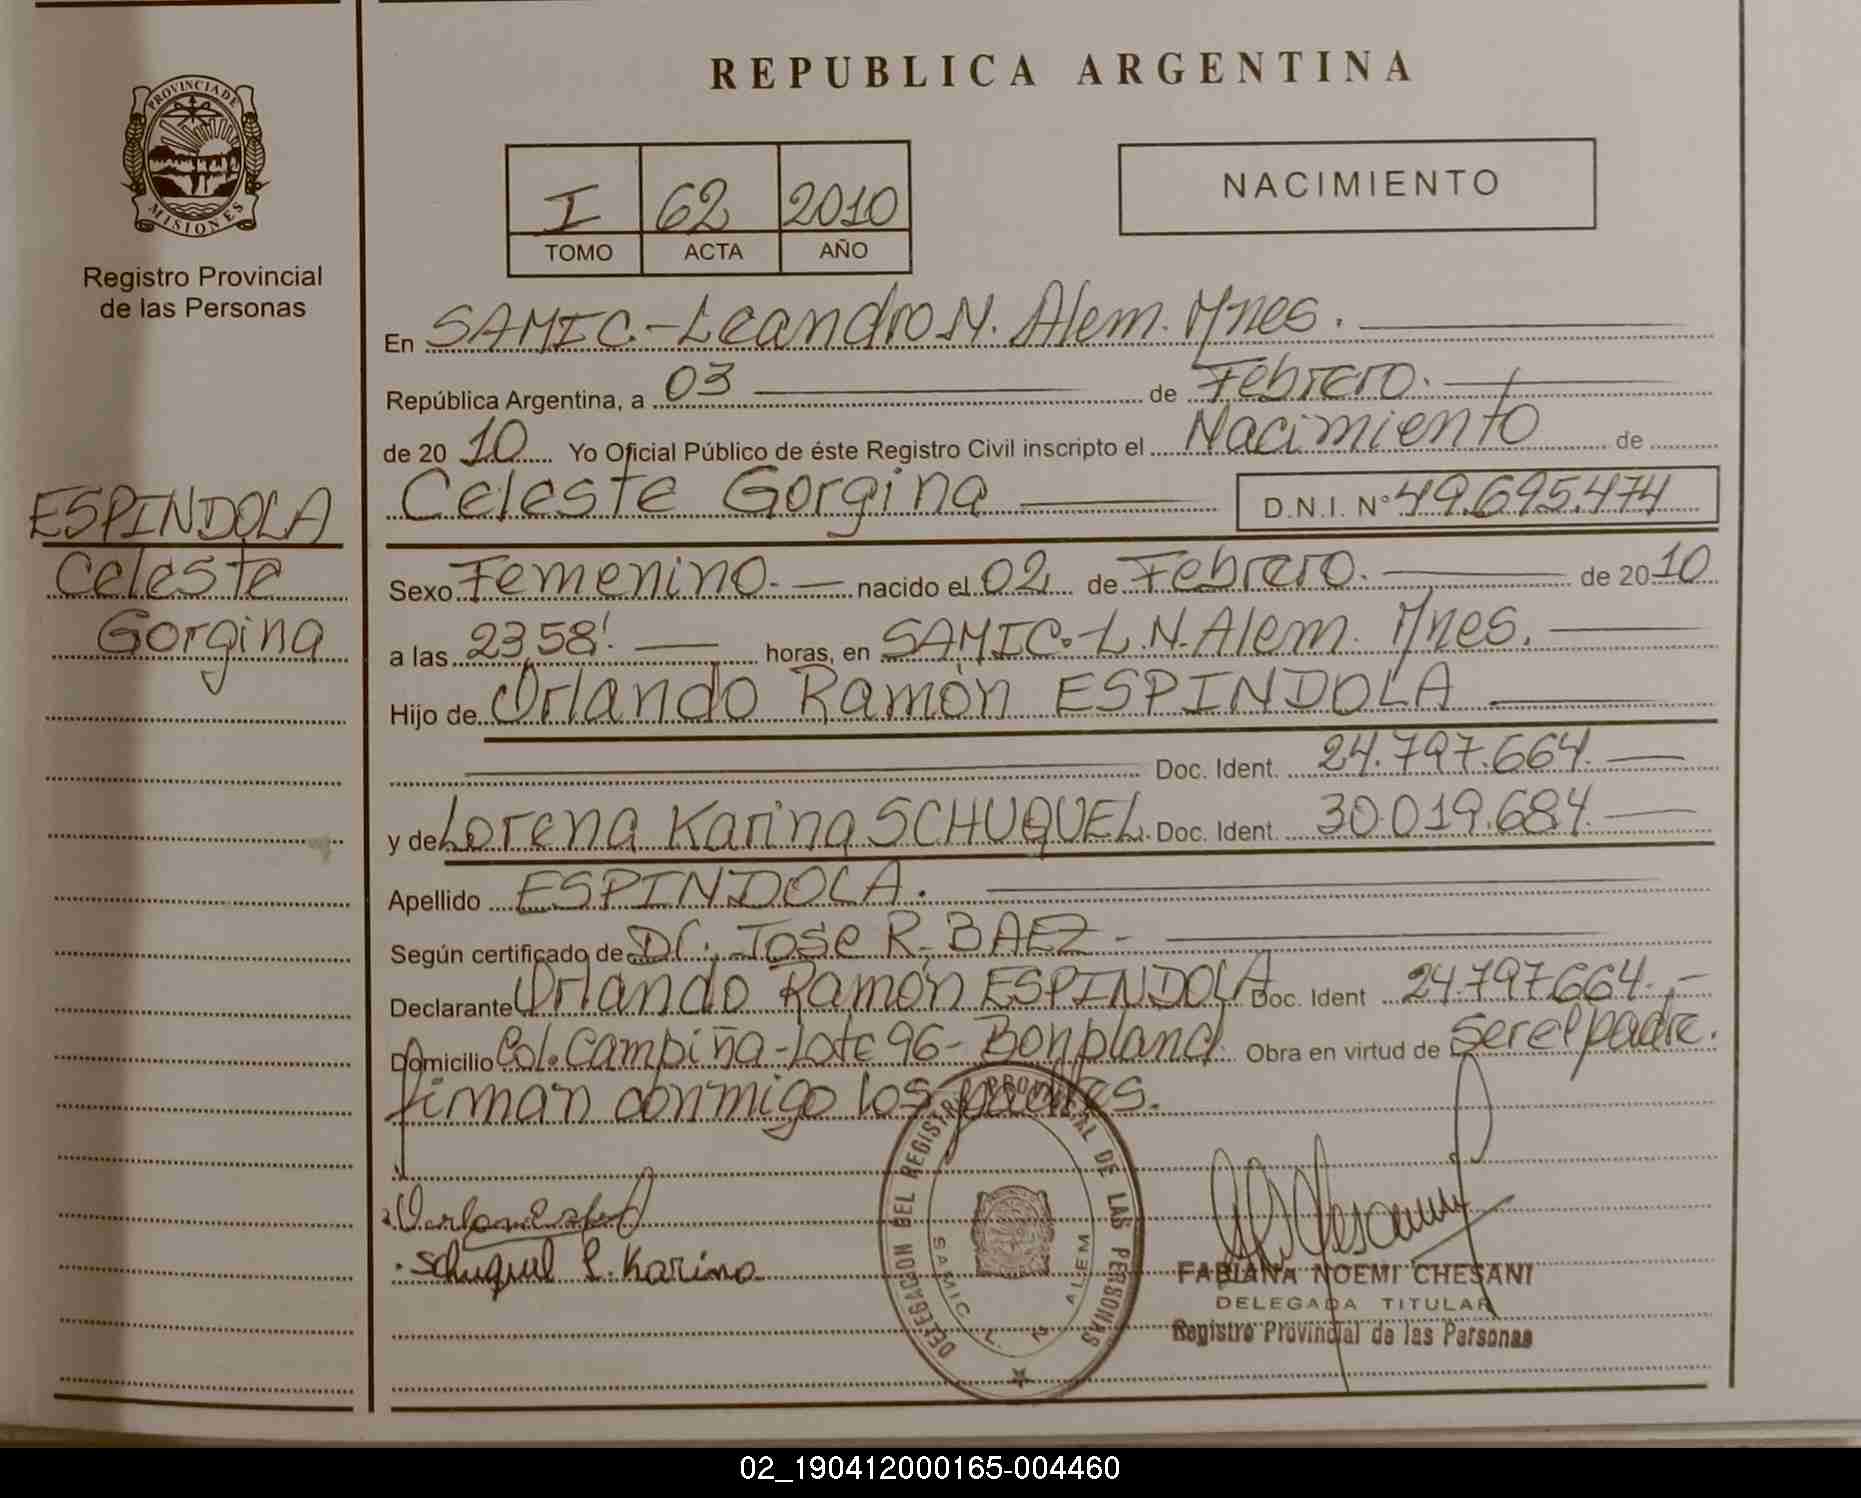 REPUBLICA ARGENTINA
PROVINCIA DE
MISIONES
Registro Provincial
de las Personas
I 62 2010
TOMO ACTA AÑO
NACIMIENTO
En SAMIC.-Leandro N. Alem. Mnes.
República Argentina, a 03 de Febrero.
de 2010 Yo Oficial Público de éste Registro Civil inscripto el Nacimiento de
Celeste Gorgina D.N.I. Nº 49.695.474
ESPINDOLA
Celeste
Gorgina
Sexo Femenino. nacido el 02 de Febrero. de 2010
a las 23,58'. horas, en SAMIC.-L.N.Alem. Mnes.
Hijo de Orlando Ramón ESPINDOLA
Doc. Ident. 24.797.664.
y de Lorena Karina SCHUQUEL. Doc. Ident. 30.019.684.
Apellido ESPINDOLA.
Según certificado de Dr. Jose R. BAEZ-
Declarante Orlando Ramón ESPINDOLA Doc. Ident 24.797.664.-
Domicilio Col. Campiña-Lote 96-Bonpland Obra en virtud de ser el padre.
firman conmigo los padres.
Schuquel L. Karina
DELEGACION DEL REGISTRO PROVINCIAL DE LAS PERSONAS
SAMIC L. N. ALEM
FABIANA NOEMI CHESANI
DELEGADA TITULAR
Registro Provincial de las Personas
02_190412000165-004460